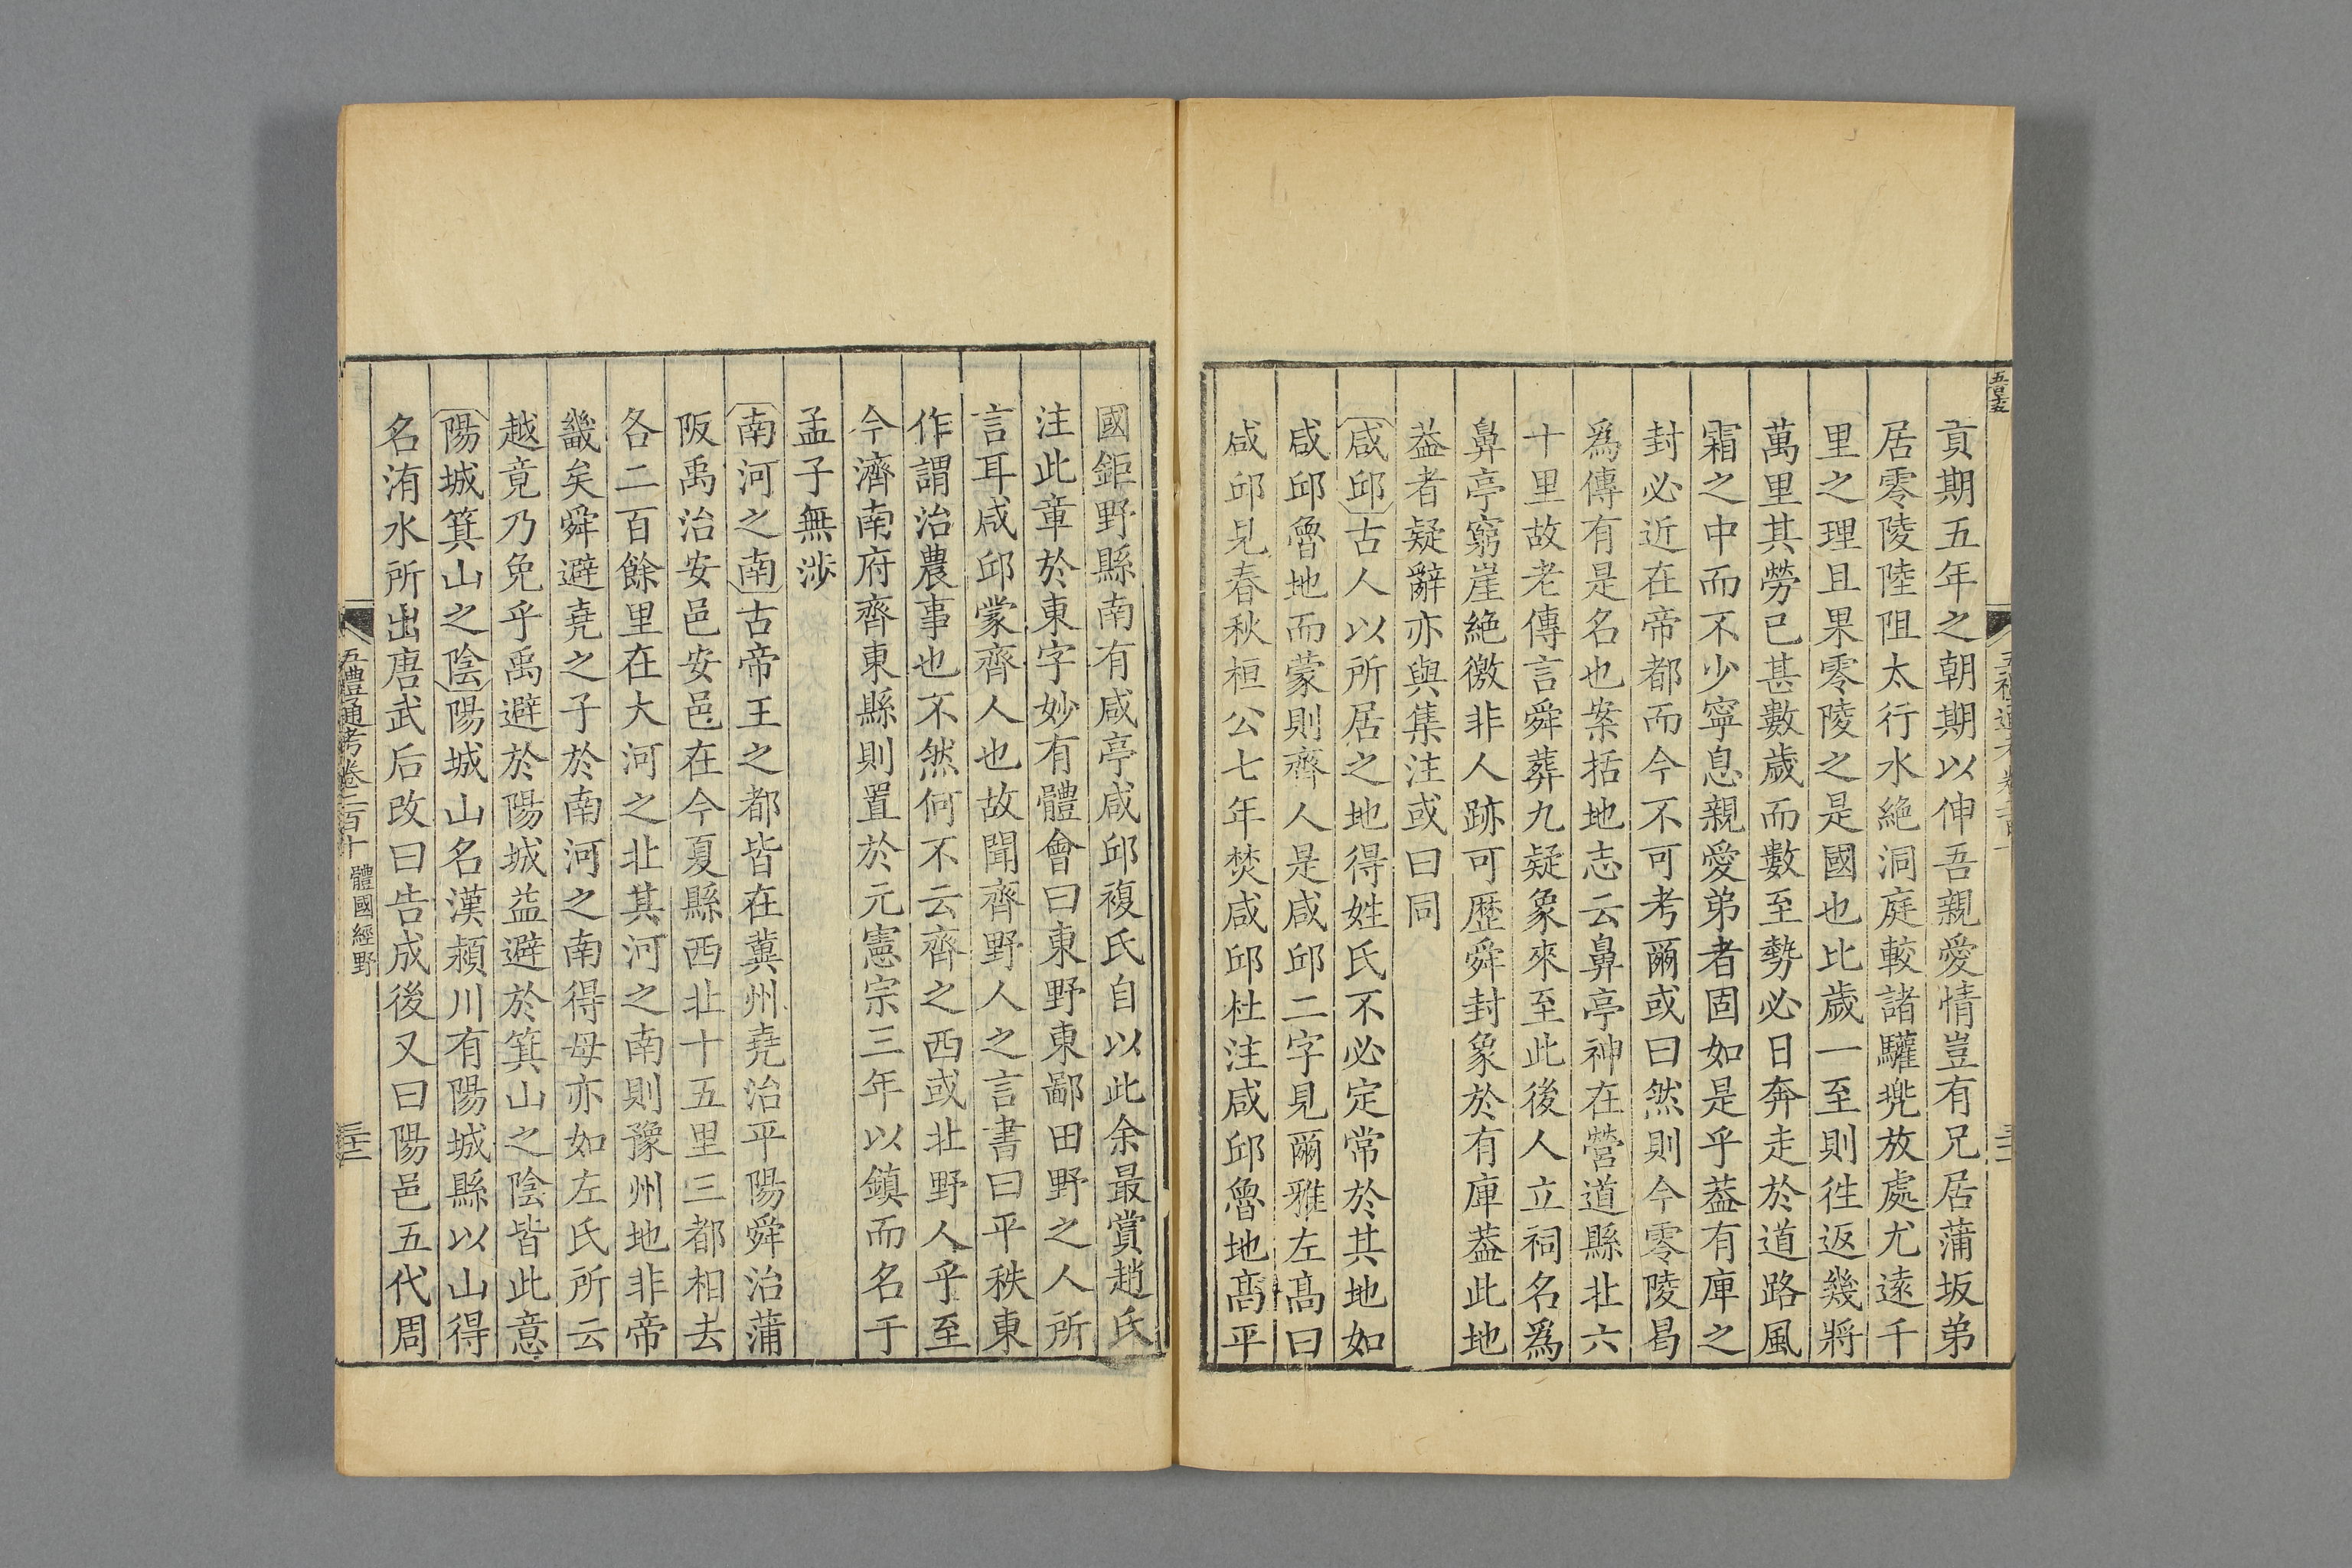 貢期五年之朝期以伸吾親愛情豈有兄居蒲坂弟
居零陵陸阻太行水絶洞庭較諸驩兠放處尤逺千
里之理且果零陵之是國也比歲一至則徃返幾將
萬里其勞已甚數歲而數至勢必日奔走於道路風
霜之中而不少寧息親愛弟者固如是乎葢有庳之
封必近在帝都而今不可考爾或曰然則今零陵曷
爲傳有是名也案括地志云鼻亭神在營道縣北六
十里故老傳言舜葬九疑象來至此後人立祠名爲
鼻亭窮崖絶徼非人跡可歴舜封象於有庳葢此地
葢者疑辭亦與集注或曰同
咸邱古人以所居之地得姓氏不必定常於其地如
咸邱魯地而蒙則齊人是咸邱二字見爾雅左髙曰
咸邱見春秋桓公七年焚咸邱杜注咸邱魯地髙平
國鉅野縣南有咸亭咸邱複氏自以此余最賞趙氏
注此章於東字妙有體會曰東野東鄙田野之人所
言耳咸邱蒙齊人也故聞齊野人之言書曰平秩東
作謂治農事也不然何不云齊之西或北野人乎至
今濟南府齊東縣則置於元憲宗三年以鎮而名于
孟子無涉
南河之南古帝王之都皆在冀州堯治平陽舜治蒲
阪禹治安邑安邑在今夏縣西北十五里三都相去
各二百餘里在大河之北其河之南則豫州地非帝
畿矣舜避堯之子於南河之南得毋亦如左氏所云
越竟乃免乎禹避於陽城益避於箕山之陰皆此意
陽城箕山之陰陽城山名漢潁川有陽城縣以山得
名洧水所出唐武后改曰告成後又曰陽邑五代周
五禮通考卷二百十 體國經野